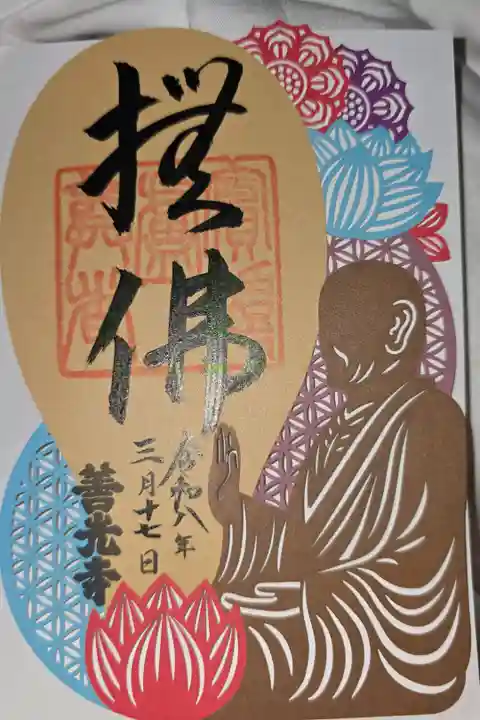 撫佛
令和八年
三月十七日
善光寺